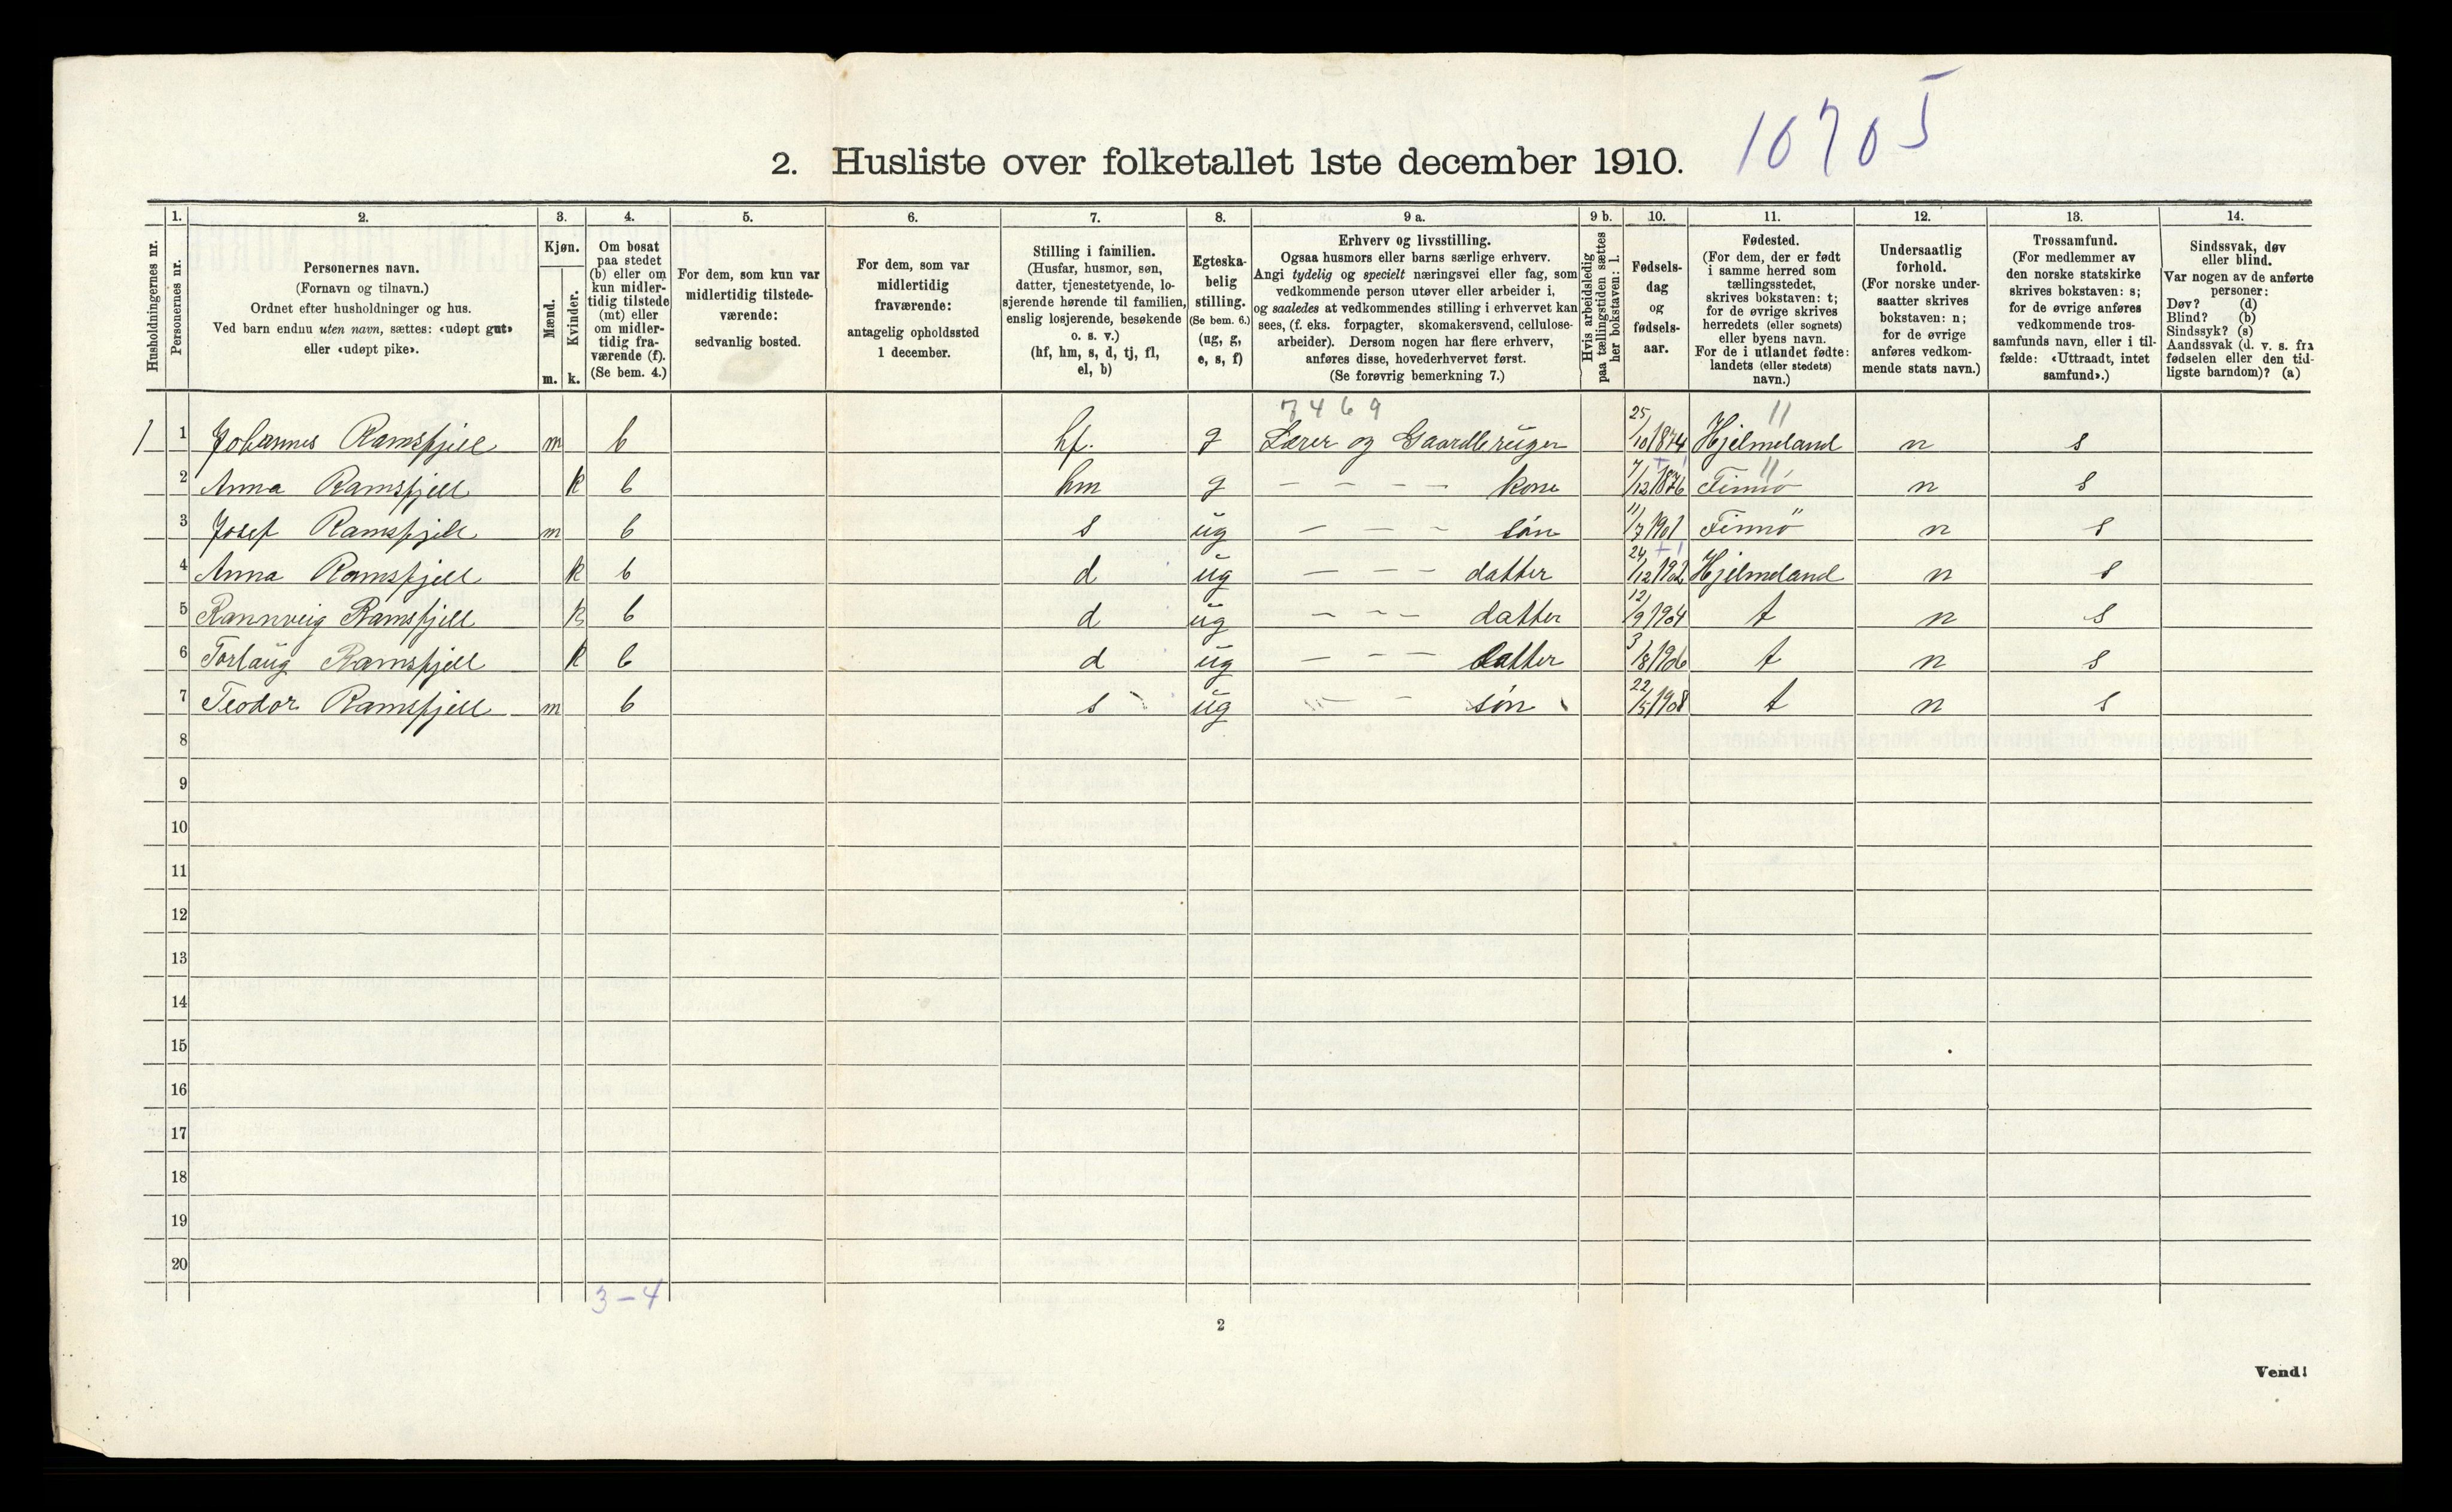 10705
2. Husliste over folketallet 1ste december 1910.
Husholdningernes nr.
1.
Personernes nr.
2.
Personernes navn.
(Fornavn og tilnavn.)
Ordnet efter husholdninger og hus.
Ved barn endnu uten navn, sættes: «udøpt gut»
eller «udøpt pike».
3.
Kjøn.
Mænd.
Kvinder.
m. k.
4.
Om bosat
paa stedet
(b) eller om
kun midler-
tidig tilstede
(mt) eller
om midler-
tidig fra-
værende (f).
(Se bem. 4.)
5.
For dem, som kun var
midlertidig tilstede-
værende:
sedvanlig bosted.
6.
For dem, som var
midlertidig
fraværende:
antagelig opholdssted
1 december.
7.
Stilling i familien.
(Husfar, husmor, søn,
datter, tjenestetyende, lo-
sjerende hørende til familien,
enslig losjerende, besøkende
o. s. v.)
(hf, hm, s, d, tj, fl,
el, b)
8.
Egteska-
belig
stilling.
(Se bem. 6.)
(ug, g,
e, s, f)
9 a.
Erhverv og livsstilling.
Ogsaa husmors eller barns særlige erhverv.
Angi tydelig og specielt næringsvei eller fag, som
vedkommende person utøver eller arbeider i,
og saaledes at vedkommendes stilling i erhvervet kan
sees, (f. eks. forpagter, skomakersvend, cellulose-
arbeider). Dersom nogen har flere erhverv,
anføres disse, hovederhvervet først.
(Se forøvrig bemerkning 7.)
9 b.
Hvis arbeidsledig
paa tællingstiden sættes
her bokstaven: l.
10.
Fødsels-
dag
og
fødsels-
aar.
11.
Fødested.
(For dem, der er født
i samme herred som
tællingsstedet,
skrives bokstaven: t;
for de øvrige skrives
herredets (eller sognets)
eller byens navn.
For de i utlandet fødte:
landets (eller stedets)
navn.)
12.
Undersaatlig
forhold.
(For norske under-
saatter skrives
bokstaven: n;
for de øvrige
anføres vedkom-
mende stats navn.)
13.
Trossamfund.
(For medlemmer av
den norske statskirke
skrives bokstaven: s;
for de øvrige anføres
vedkommende tros-
samfunds navn, eller i til-
fælde: «Uttraadt, intet
samfund».)
14.
Sindssvak, døv
eller blind.
Var nogen av de anførte
personer:
Døv? (d)
Blind? (b)
Sindssyk? (s)
Aandssvak (d. v. s. fra
fødselen eller den tid-
ligste barndom)? (a)
7469 11
1 1 Johannes Ramsfjell m b hf. g Lærer og Gaardbruger 25/10 1874 Hjelmeland n s
11
2 Anna Ramsfjell k b hm g — — — — kone 7/12 1876 Finnö n s
3 Josef Ramsfjell m b s ug — — — søn 11/7 1901 Finnö n s
4 Anna Ramsfjell k b d ug — — — datter 24/12 1902 Hjelmeland n s
5 Rannveig Ramsfjell k b d ug — — — datter 12/9 1904 t n s
6 Torlaug Ramsfjell k b d ug — — — datter 3/8 1906 t n s
7 Teodor Ramsfjell m b s ug — — — søn 22/5 1908 t n s
8
9
10
11
12
13
14
15
16
17
18
19
20
3-4
2
Vend!